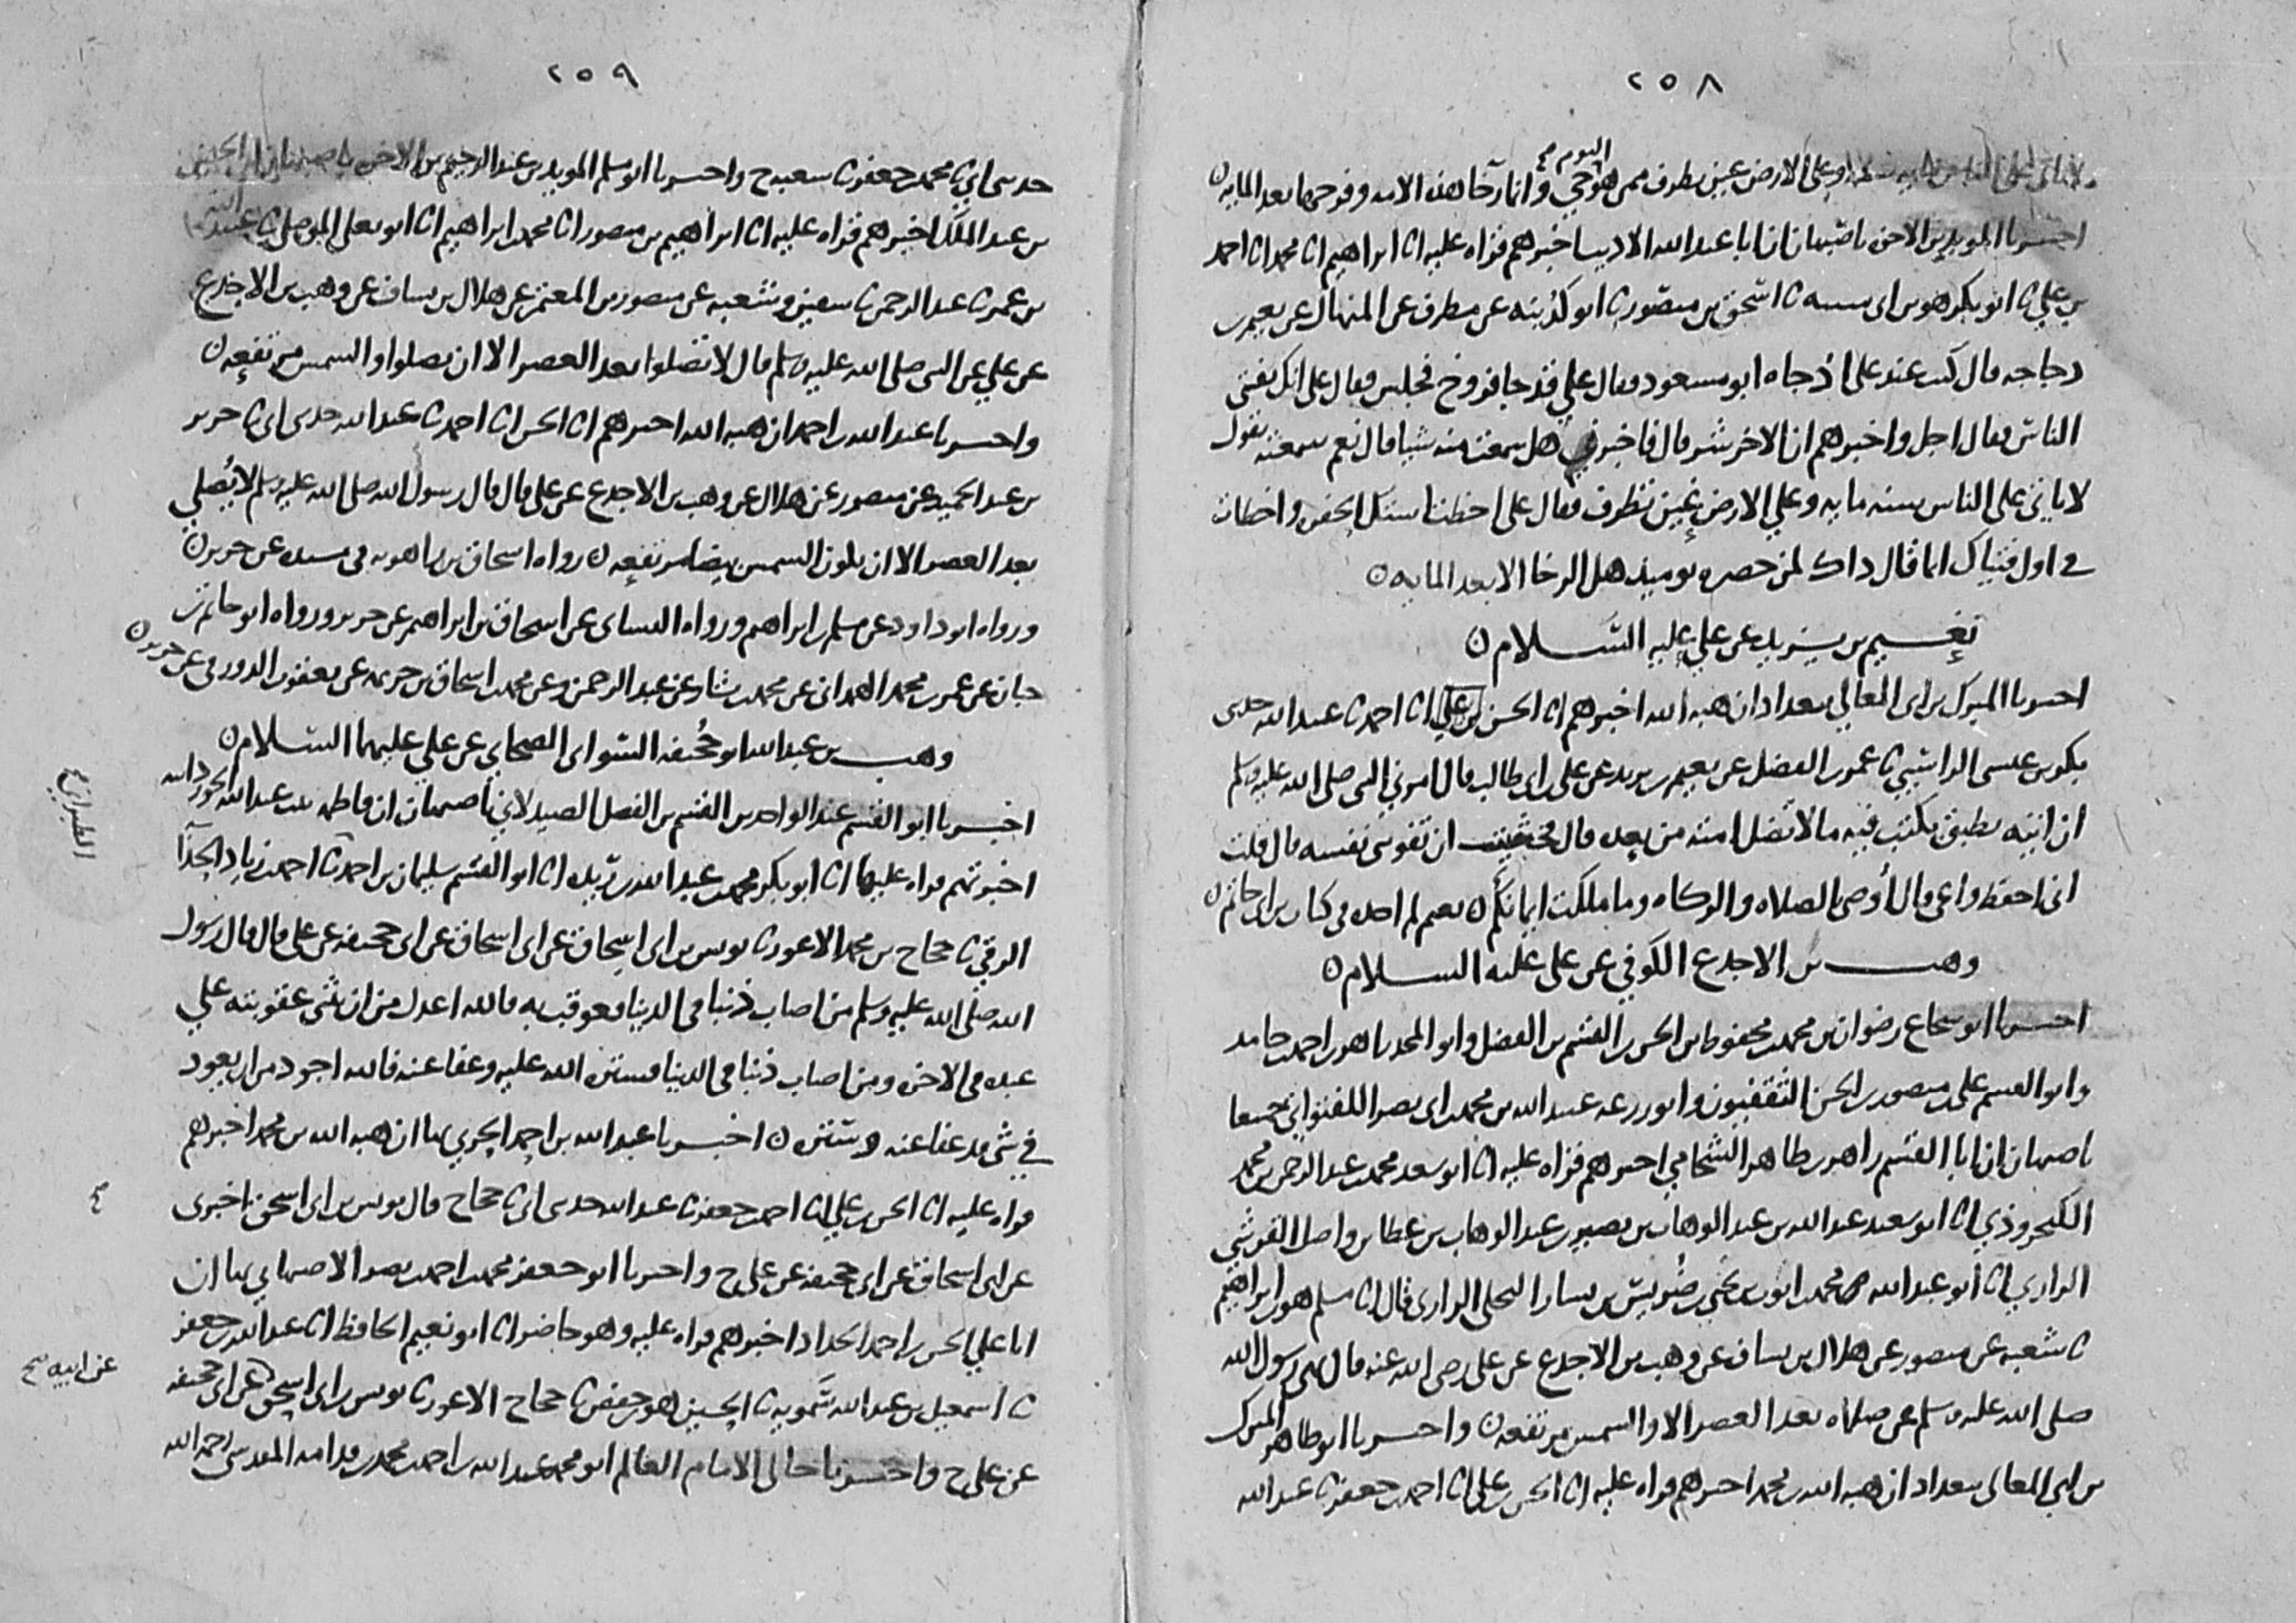 ٢٥٨
لا ياتي على الناس مايه سنه وعلى الارض عين تطرف ممن هو حي اليوم صح وانما رخا هذه الامه وفرجها بعد المايه ن
اخبرنا المويد بن الاخوه باصبهان ان ابا عبد الله الاديب اخبرهم قراه عليه انا ابراهيم انا محمد انا احمد
بن علي نا ابو بكر هو بن ابي شيبه نا اسحق بن منصور نا ابو كدينه عن مطرف عن المنهال عن نعيم بن
دجاجه قال كنت عند علي اذ جاه ابو مسعود فقال علي قد جا فروخ فجلس فقال علي انك تفتي
الناس فقال اجل واخبرهم ان الاخر شر قال فاخبرني هل سمعت منه شيا قال نعم سمعته يقول
لا ياتي على الناس سنه مايه وعلي الارض عين تطرف فقال علي اخطات استك الحفره واخطات
في اول فتياك انما قال ذاك لمن حضره يوميذ هل الرخا الا بعد المايه ن
نعيم بن يزيد عن علي عليه السلام ن
اخبرنا المبارك بن ابي المعالي ببغداد ان هبه الله اخبرهم انا الحسن بن علي انا احمد نا عبد الله حدثني
بكر بن عيسى الراسبي نا عمر بن الفضل عن نعيم بن يزيد عن علي بن ابي طالب قال امرني النبي صلى الله عليه وسلم
ان اتيه بطبق يكتب فيه ما لا تضل امته من بعده قال فخشيت ان تفوتني نفسه قال قلت
اني احفظ واعي قال اوصي بالصلاه والزكاه وما ملكت ايمانكم ن نعيم لم اجده في كتاب بن ابي حاتم ن
وهب بن الاجدع الكوفي عن علي عليه السلام ن
اخبرنا ابو شجاع رضوان بن محمد بن محفوظ بن الحسن بن القسم بن الفضل وابو المجد زاهر بن احمد بن حامد
وابو القسم علي بن منصور بن الحسن الثقفيون وابو زرعه عبيد الله بن محمد بن ابي نصر اللفتواني جميعا
باصبهان ان ابا القسم زاهر بن طاهر الشحامي اخبرهم قراه عليه انا ابو سعد محمد بن عبد الرحمن بن محمد
الكنجروذي انا ابو سعيد عبد الله بن عبد الوهاب بن نصير بن عبد الوهاب بن عطا بن واصل القرشي
الرازي انا ابو عبد الله محمد بن ايوب بن يحيى بن ضريس بن يسار البجلي الرازي قال انا مسلم هو بن ابراهيم
نا شعبه عن منصور عن هلال بن يساف عن وهب بن الاجدع عن علي رضي الله عنه قال نهى رسول الله
صلى الله عليه وسلم عن صلاه بعد العصر الا والشمس مرتفعه ن واخبرنا ابو طاهر المبارك
بن ابي المعالي ببغداد ان هبه الله بن محمد اخبرهم قراه عليه انا الحسن بن علي انا احمد بن جعفر نا عبد الله
٢٥٩
حدثني ابي نا محمد بن جعفر نا شعبه ح واخبرنا ابو مسلم المويد بن عبد الرحيم بن الاخوه باصبهان ان الحسين
بن عبد الملك اخبرهم قراه عليه انا ابراهيم بن منصور انا محمد بن ابراهيم انا ابو يعلى الموصلي نا عبيد الله
بن عمر نا عبد الرحمن نا سفين وشعبه عن منصور بن المعتمر عن هلال بن يساف عن وهب بن الاجدع
عن علي عن النبي صلى الله عليه وسلم قال لا تصلوا بعد العصر الا ان تصلوا والشمس مرتفعه ن
واخبرنا عبد الله بن احمد ان هبه الله اخبرهم انا الحسن انا احمد نا عبد الله حدثني ابي نا جرير
بن عبد الحميد عن منصور عن هلال عن وهب بن الاجدع عن علي قال قال رسول الله صلى الله عليه وسلم لا يصلي
بعد العصر الا ان تكون الشمس بيضا مرتفعه ن رواه اسحاق بن راهويه في مسنده عن جرير ن
ورواه ابو داود عن مسلم بن ابراهيم ورواه النساى عن اسحاق بن ابراهيم عن جرير ورواه ابو حاتم بن
حبان عن عمر بن محمد الهمداني عن محمد بن بشار عن عبد الرحمن وعن محمد بن اسحاق بن خزيمه عن يعقوب الدورقي عن جرير ن
وهب بن عبد الله ابو جحيفه السواى الصحابي عن علي عليهما السلام ن
اخبرنا ابو القسم عبد الواحد بن القسم بن الفضل الصيدلاني باصبهان ان فاطمه بنت عبد الله الجوزدانيه
اخبرتهم قراه عليها انا ابو بكر محمد بن عبد الله بن ريذه انا ابو القسم سليمان بن احمد نا احمد بن زياد الحذا
الطبراني صح
الرقي نا حجاج بن محمد الاعور نا يونس بن ابي اسحاق عن ابي اسحاق عن ابي جحيفه عن علي قال قال رسول
الله صلى الله عليه وسلم من اصاب ذنبا في الدنيا فعوقب به فالله اعدل من ان يثني عقوبته علي
عبده في الاخره ومن اصاب ذنبا في الدنيا فستره الله عليه وعفا عنه فالله اجود من ان يعود
في شي قد عفا عنه وستره ن اخبرنا عبد الله بن احمد الحربي بها ان هبه الله بن محمد اخبرهم
قراه عليه انا الحسن بن علي انا احمد بن جعفر نا عبد الله حدثني ابي نا حجاج قال يونس بن ابي اسحق اخبرني
صح
عن ابي اسحاق عن ابي جحيفه عن علي ح واخبرنا ابو جعفر محمد بن احمد بن نصر الاصبهاني بها ان
ابا علي الحسن بن احمد الحداد اخبرهم قراه عليه وهو حاضر انا ابو نعيم الحافظ انا عبد الله بن جعفر
نا اسمعيل بن عبد الله سمويه نا الحسين هو بن حفص نا حجاج الاعور نا يونس بن ابي اسحق عن ابي جحيفه
عن ابيه صح
عن علي ح واخبرنا خالي الامام العالم ابو محمد عبد الله بن احمد بن محمد بن قدامه المقدسي رحمه الله